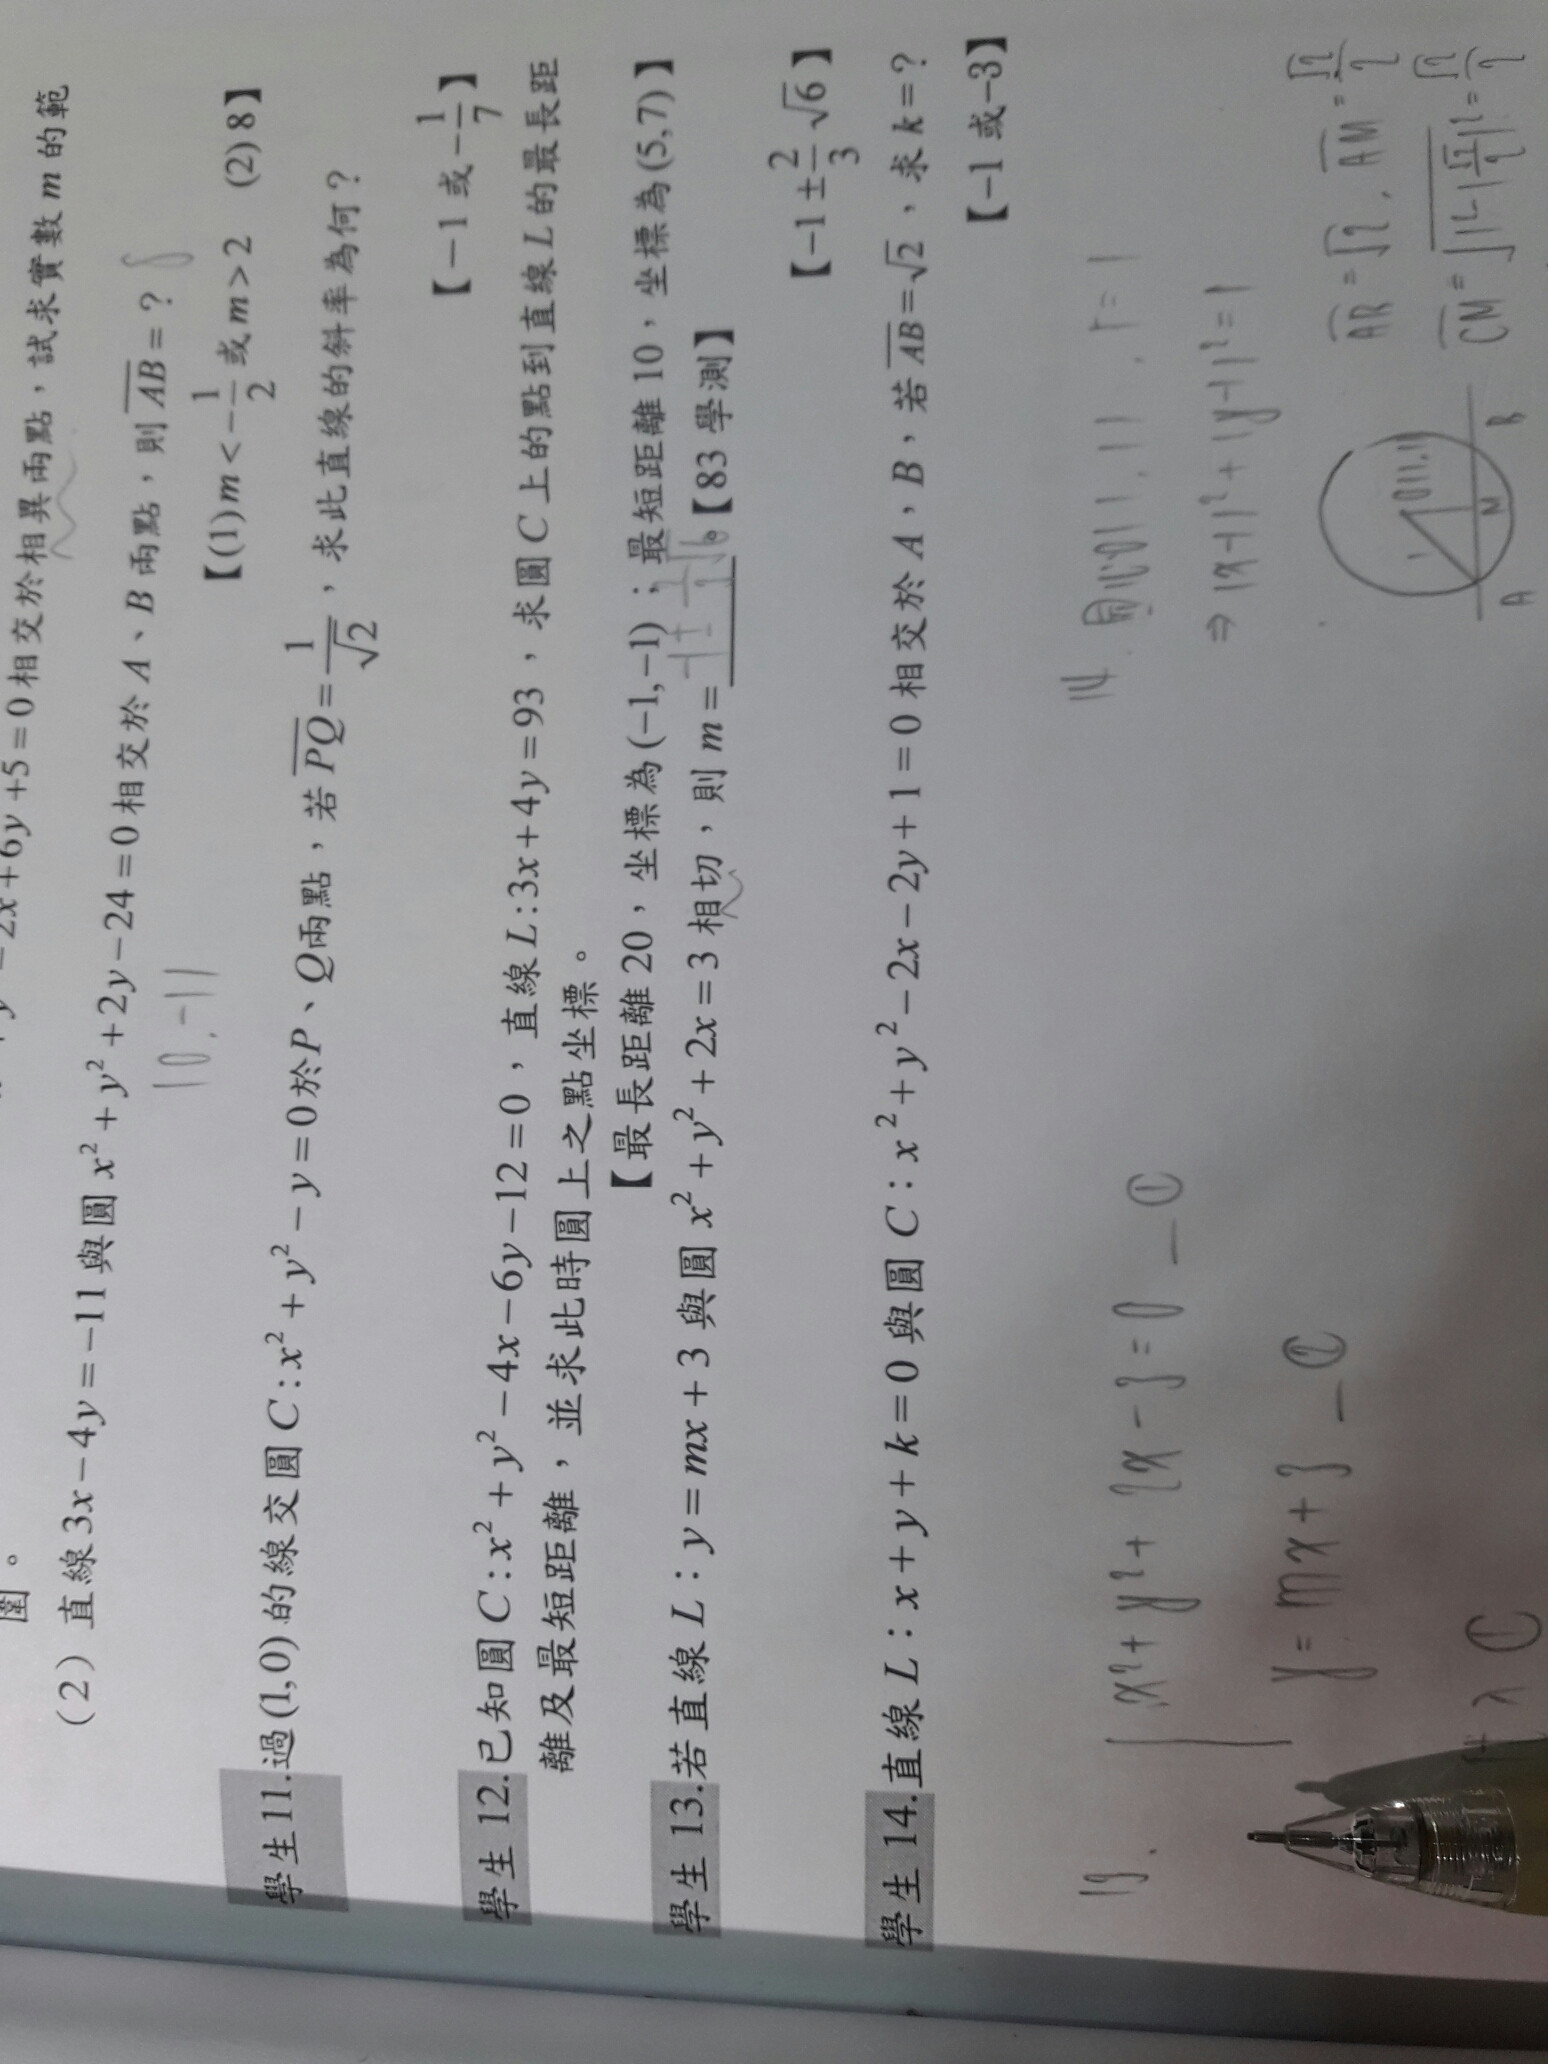 -2x+6y+5=0相交於相異兩點，試求實數 m 的範
圍。
（2）直線3x-4y=-11與圓 x²+y²+2y-24=0相交於 A、B 兩點，則 \overline{AB}=? 8
(0,-1)
【(1)m<-\frac{1}{2}或m>2 (2)8】
學生11.過(1,0)的線交圓C:x²+y²-y=0於P、Q兩點，若\overline{PQ}=\frac{1}{\sqrt{2}}，求此直線的斜率為何？
【-1或-\frac{1}{7}】
學生 12.已知圓C:x²+y²-4x-6y-12=0，直線L:3x+4y=93，求圓C上的點到直線L的最長距
離及最短距離，並求此時圓上之點坐標。
【最長距離20，坐標為(-1,-1)；最短距離10，坐標為(5,7)】
學生 13.若直線L：y=mx+3 與圓 x²+y²+2x=3 相切，則 m= 【83學測】
【-1±\frac{2}{3}\sqrt{6}】
學生 14.直線L：x+y+k=0與圓C：x²+y²-2x-2y+1=0相交於A，B，若\overline{AB}=\sqrt{2}，求k=?
【-1或-3】
13.
x²+y²+2x-3=0 —①
y=mx+3 —②
14. 圓心O(1,1), r=1
⇒ (x-1)²+(y-1)²=1
O(1,1)
1
A M B
\overline{AB}=\sqrt{2}, \overline{AM}=\frac{\sqrt{2}}{2}
\overline{CM}=\sqrt{1²-(\frac{\sqrt{2}}{2})²}=\frac{\sqrt{2}}{2}